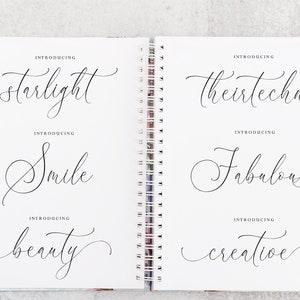 INTRODUCING
starlight
INTRODUCING
Smile
INTRODUCING
beauty
INTRODUCING
theirtechn
INTRODUCING
Fabulou
INTRODUCING
creative